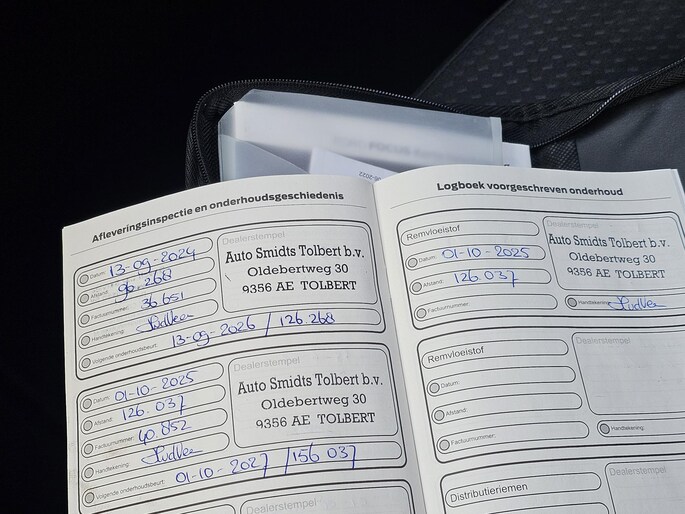 Afleveringsinspectie en onderhoudsgeschiedenis
Datum: 13-09-2024
Afstand: 96.268
Factuurnummer: 36.651
Handtekening:
Volgende onderhoudsbeurt: 13-09-2026 / 126.268
Dealerstempel
Auto Smidts Tolbert b.v.
Oldebertweg 30
9356 AE TOLBERT
Datum: 01-10-2025
Afstand: 126.037
Factuurnummer: 40.852
Handtekening:
Volgende onderhoudsbeurt: 01-10-2027 / 156 037
Dealerstempel
Auto Smidts Tolbert b.v.
Oldebertweg 30
9356 AE TOLBERT
Logboek voorgeschreven onderhoud
Remvloeistof
Datum: 01-10-2025
Afstand: 126.037
Factuurnummer:
Dealerstempel
Auto Smidts Tolbert b.v.
Oldebertweg 30
9356 AE TOLBERT
Handtekening:
Remvloeistof
Datum:
Afstand:
Factuurnummer:
Dealerstempel
Handtekening:
Distributieriemen
Dealerstempel